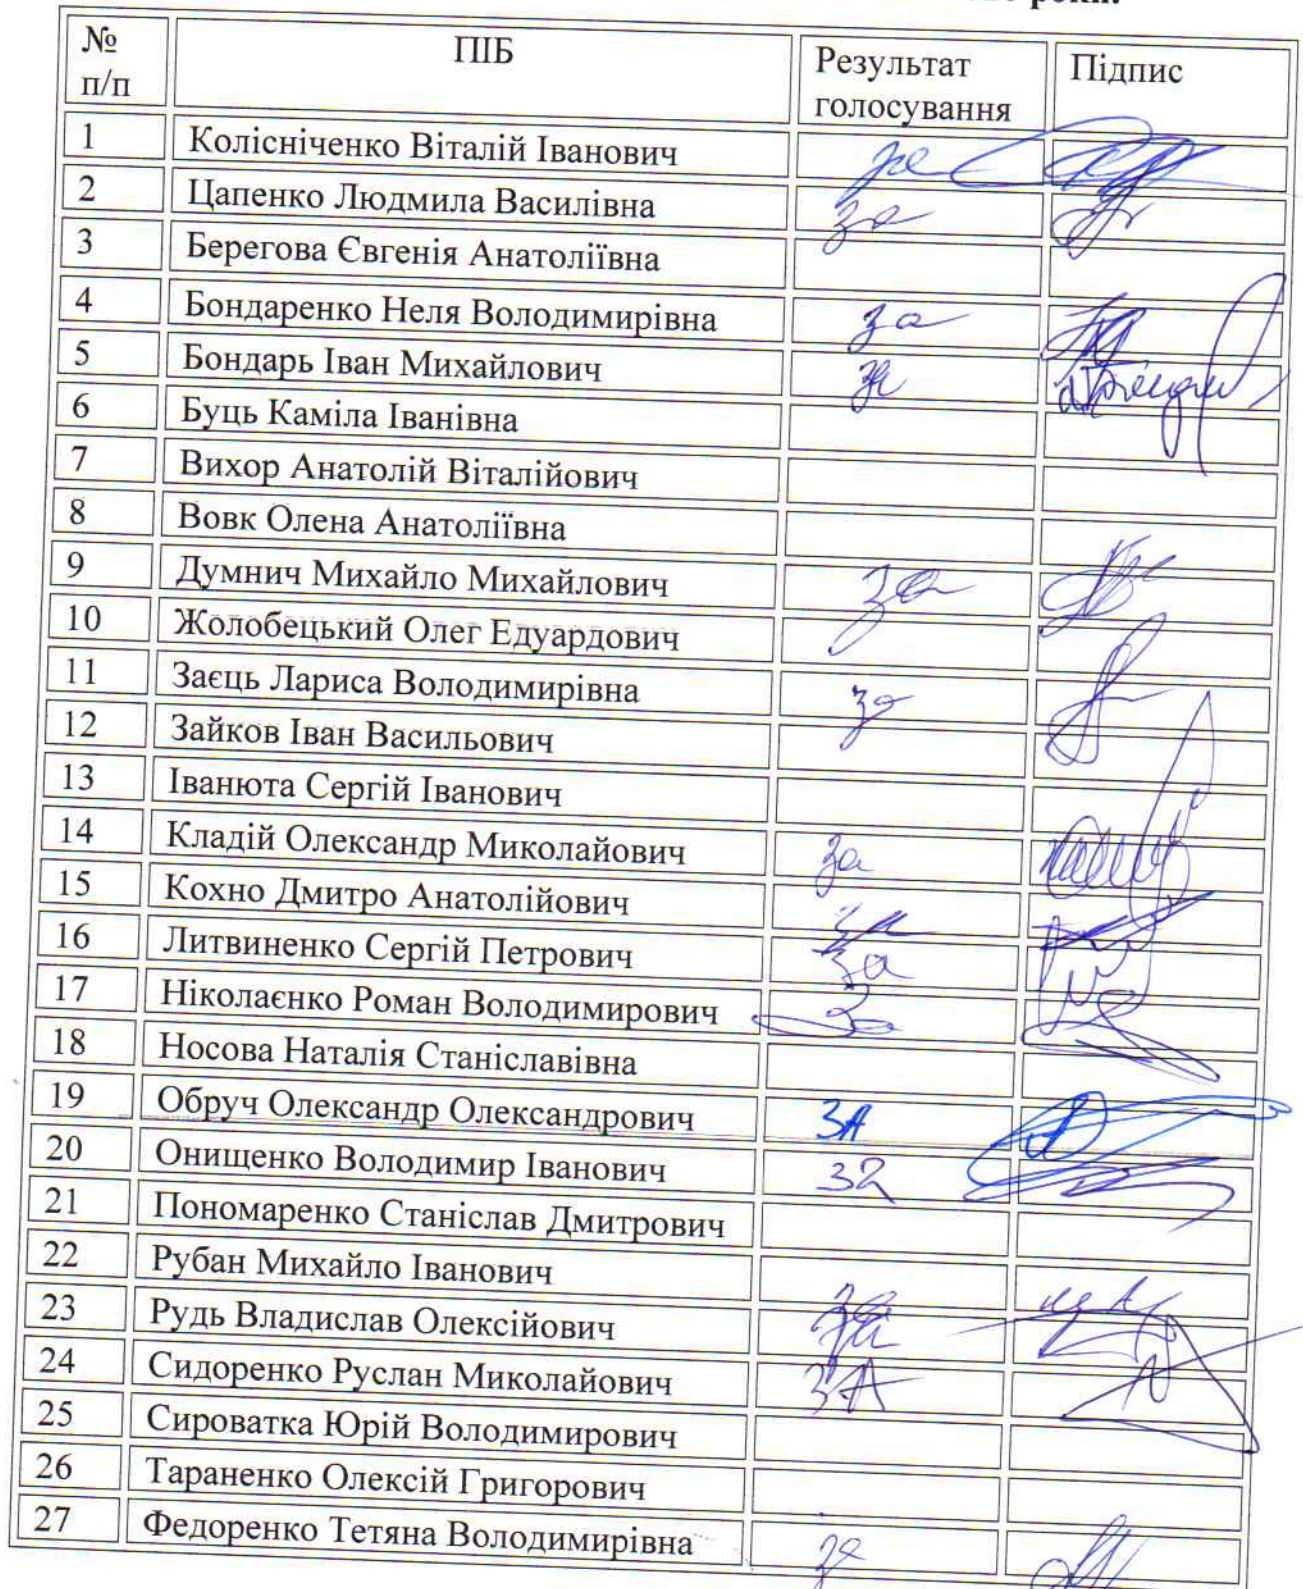 № п/п ПІБ Результат голосування Підпис
1 Колісніченко Віталій Іванович за
2 Цапенко Людмила Василівна за
3 Берегова Євгенія Анатоліївна
4 Бондаренко Неля Володимирівна за
5 Бондарь Іван Михайлович за
6 Буць Каміла Іванівна
7 Вихор Анатолій Віталійович
8 Вовк Олена Анатоліївна
9 Думнич Михайло Михайлович за
10 Жолобецький Олег Едуардович
11 Заєць Лариса Володимирівна за
12 Зайков Іван Васильович
13 Іванюта Сергій Іванович
14 Кладій Олександр Миколайович за
15 Кохно Дмитро Анатолійович за
16 Литвиненко Сергій Петрович за
17 Ніколаєнко Роман Володимирович за
18 Носова Наталія Станіславівна
19 Обруч Олександр Олександрович ЗА
20 Онищенко Володимир Іванович за
21 Пономаренко Станіслав Дмитрович
22 Рубан Михайло Іванович
23 Рудь Владислав Олексійович за
24 Сидоренко Руслан Миколайович ЗА
25 Сироватка Юрій Володимирович
26 Тараненко Олексій Григорович
27 Федоренко Тетяна Володимирівна за